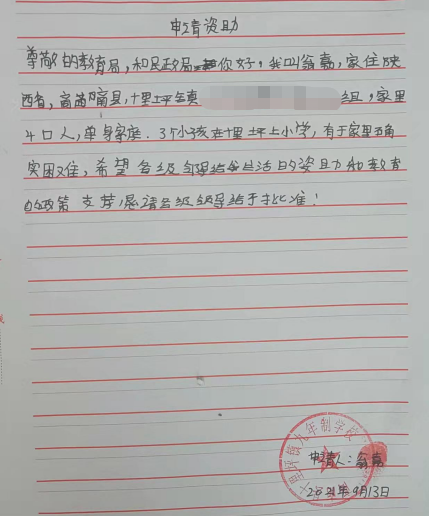 申请资助
尊敬的教育局,和民政局 你好,我叫翁嘉,家住陕
西省,商洛 南县,十里坪镇 组,家里
4口人,单身家庭.3个小孩在十里坪上小学,有于家里确
实困难,希望各级领导给
的政策支持,恳请各级领导给于批准!
十里坪镇九年制学校
申请人:翁嘉
2021年9月13日